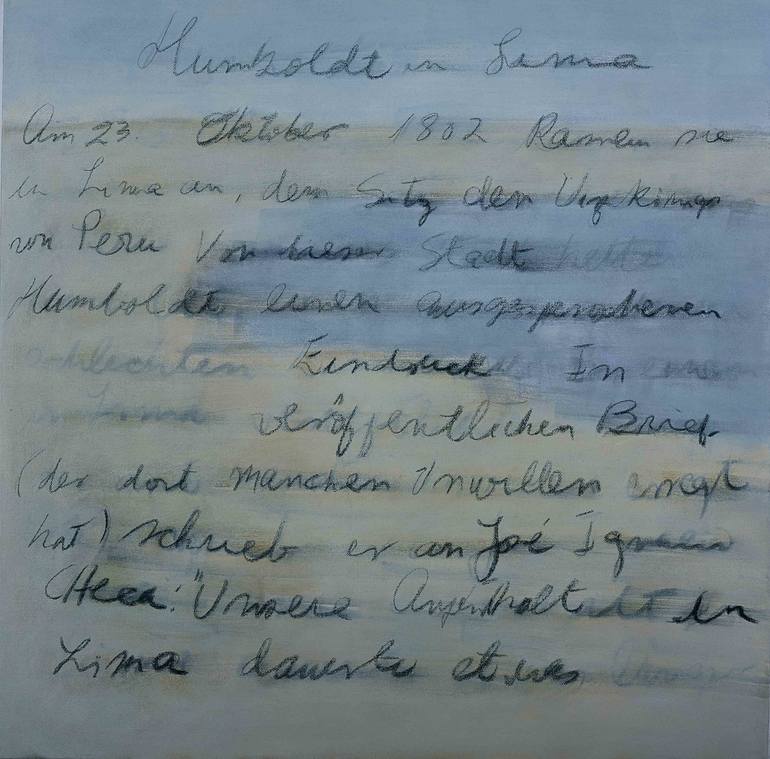 Humboldt in Lima
Am 23. Oktober 1802 kamen sie
in Lima an, dem Sitz den Vizekönigs
von Peru Von dieser Stadt hatte
Humboldt einen ausgesprochenen
schlechten Eindruck In einem
in Lima veröffentlichen Brief
(der dort manchen Unwillen erregt
hat) schrieb er an José Ignacio
Checa: "Unsere Aufenthalt in
Lima dauerte etwas